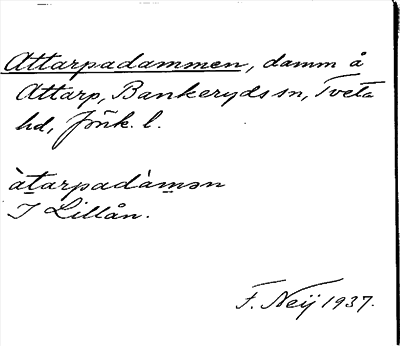 Attarpadammen, damm å
Attarp, Bankeryds sn, Tveta
hd, Jönk. l.
àtarpadàmən
I Lillån.
F. Neij 1937.